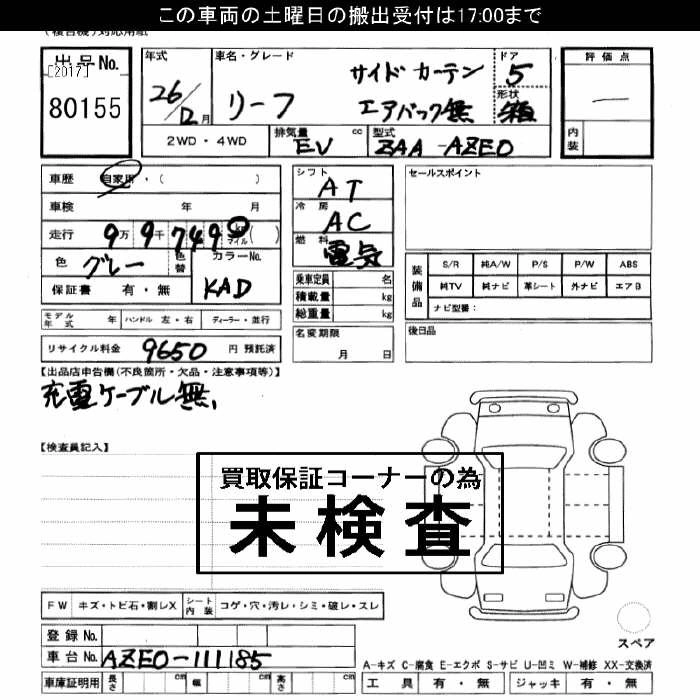 この車両の土曜日の搬出受付は17:00まで
出品No.
[2017]
80155
年式
26/12月
車名・グレード
リーフ
サイド カーテン
エアバック無
ドア
5
形状
箱
評価点
—
内装
2WD・4WD
排気量 cc
EV
型式
ZAA-AZE0
車歴 自家用・( )
車検 年 月
走行 9万9千749 km マイル ( )
色 グレー 色替
カラーNo.
KAD
保証書 有・無
モデル年式 年 ハンドル 左・右 ディーラー・並行
リサイクル料金 9650 円 預託済
シフト
AT
冷房
AC
燃料
電気
乗車定員 名
積載量 kg
総重量 kg
名変期限
月 日
セールスポイント
装備品
S/R 純A/W P/S P/W ABS
純TV 純ナビ 革シート 外ナビ エアB
ナビ型番：
後日品
【出品店申告欄(不良箇所・欠品・注意事項等)】
充電ケーブル無、
【検査員記入】
買取保証コーナーの為
未検査
FW キズ・トビ石・割レX シート内装 コゲ・穴・汚レ・シミ・破レ・スレ
登録No.
車台No. AZE0-111185
車庫証明用 長さ cm 幅 cm 高さ cm
スペア
A-キズ C-腐食 E-エクボ S-サビ U-凹ミ W-補修 XX-交換済
工具 有・無 ジャッキ 有・無